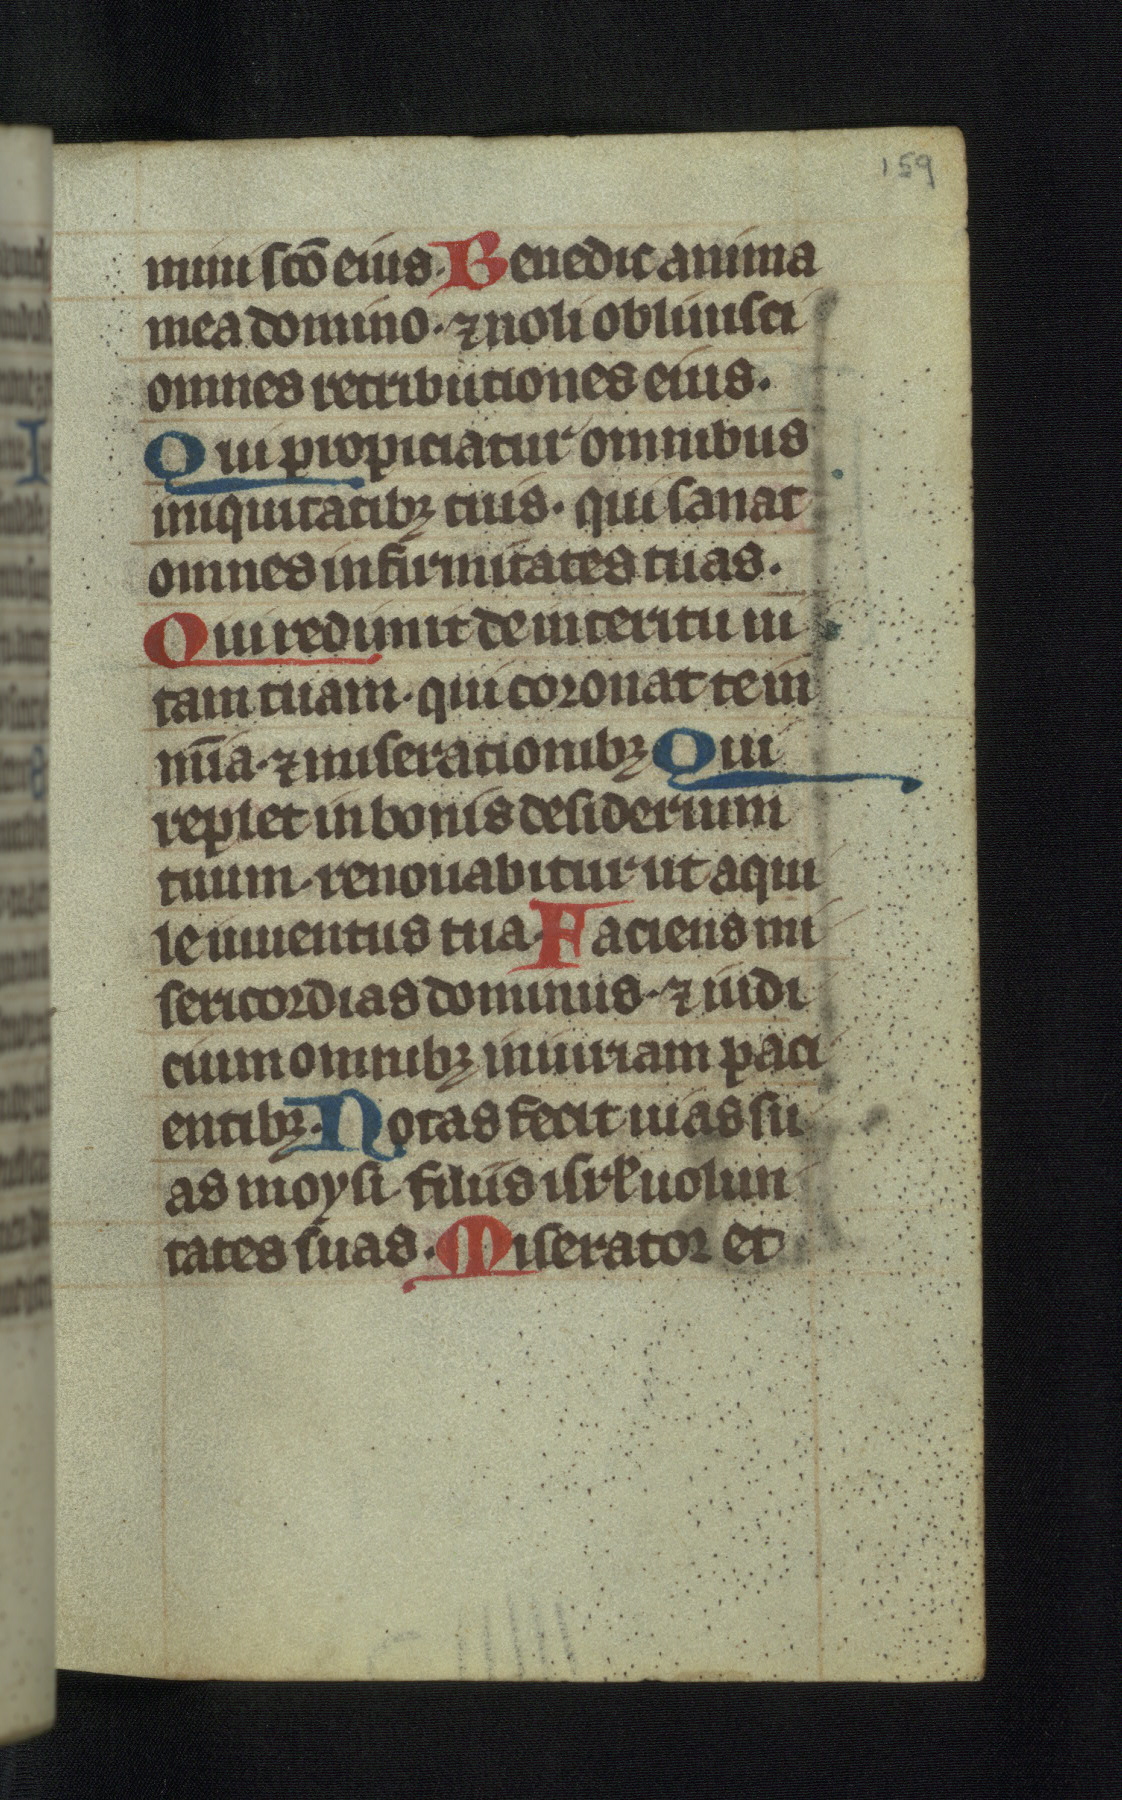 159
mini scō eius. Benedic anima
mea domino. ⁊ noli obliuisci
omnes retributiones eius.
Qui propiciatur omnibus
iniquitatibꝫ tuis. qui sanat
omnes infirmitates tuas.
Qui redimit de interitu ui
tam tuam. qui coronat te in
mīa. ⁊ miserationibꝫ Qui
replet in bonis desiderium
tuum. renouabitur ut aqui
le iuuentus tua. Faciens mi
sericordias dominus. ⁊ iudi
cium omnibꝫ iniuriam paci
entibꝫ. Notas fecit uias su
as moysi filiis isrł uolun
tates suas. Miserator et